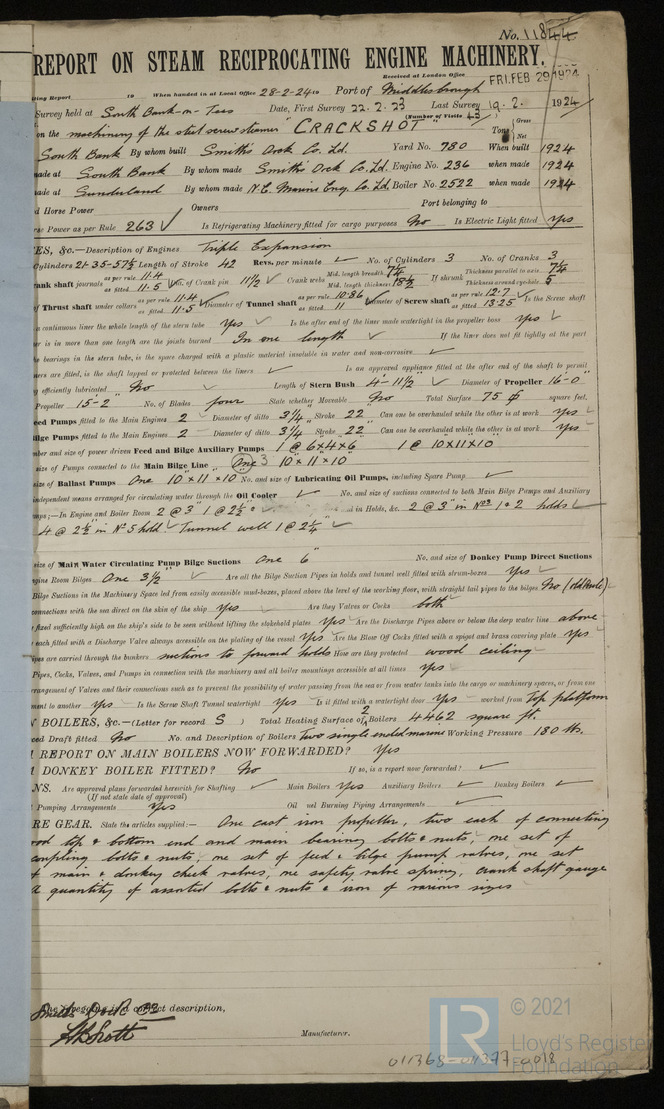 No. 11844
REPORT ON STEAM RECIPROCATING ENGINE MACHINERY.
Received at London Office
FRI. FEB 29 1924
ting Report 19 When handed in at Local Office 28-2-24 19 Port of Middlesbrough
Survey held at South Bank-on-Tees Date, First Survey 22.2.23 Last Survey 19.2. 1924
(Number of Visits 43)
on the machinery of the steel screw steamer "CRACKSHOT" Tons Gross Net
South Bank By whom built Smith's Dock Co. Ld. Yard No. 780 When built 1924
made at South Bank By whom made Smith's Dock Co. Ld. Engine No. 236 when made 1924
made at Sunderland By whom made N.E. Marine Eng. Co. Ld. Boiler No. 2522 when made 1924
d Horse Power Owners Port belonging to
rse Power as per Rule 263 Is Refrigerating Machinery fitted for cargo purposes No Is Electric Light fitted Yes
ES, &c.—Description of Engines Triple Expansion
Cylinders 21-35-57½ Length of Stroke 42 Revs. per minute No. of Cylinders 3 No. of Cranks 3
rank shaft journals as per rule 11.4 as fitted 11.5 Dia. of Crank pin 11½ Crank webs Mid. length breadth Mid. length thickness If shrunk Thickness parallel to axis 7¼ Thickness around eyehole 5
of Thrust shaft under collars as per rule 11.4 as fitted 11.5 Diameter of Tunnel shaft as per rule 10.86 as fitted 11 Diameter of Screw shaft as per rule 12.7 as fitted 13.25 Is the Screw shaft
a continuous liner the whole length of the stern tube Yes Is the after end of the liner made watertight in the propeller boss Yes
er is in more than one length are the joints burned In one length If the liner does not fit tightly at the part
he bearings in the stern tube, is the space charged with a plastic material insoluble in water and non-corrosive
ners are fitted, is the shaft lapped or protected between the liners Is an approved appliance fitted at the after end of the shaft to permit
g efficiently lubricated No Length of Stern Bush 4'-11½" Diameter of Propeller 16-0"
Propeller 15-2" No. of Blades four State whether Moveable No Total Surface 75 square feet.
eed Pumps fitted to the Main Engines 2 Diameter of ditto 3¼ Stroke 22" Can one be overhauled while the other is at work yes
ilge Pumps fitted to the Main Engines 2 Diameter of ditto 3¼" Stroke 22" Can one be overhauled while the other is at work yes
mber and size of power driven Feed and Bilge Auxiliary Pumps 1 @ 6x4x6 1 @ 10"x11"x10"
size of Pumps connected to the Main Bilge Line One 3 10"x11"x10"
size of Ballast Pumps One 10"x11"x10 No. and size of Lubricating Oil Pumps, including Spare Pump
independent means arranged for circulating water through the Oil Cooler No. and size of suctions connected to both Main Bilge Pumps and Auxiliary
mps;—In Engine and Boiler Room 2 @ 3" 1 @ 2½" and in Holds, &c. 2 @ 3" in Nos 1 & 2 holds
4 @ 2½" in No 5 hold. Tunnel well 1 @ 2½"
size of Main Water Circulating Pump Bilge Suctions One 6" No. and size of Donkey Pump Direct Suctions
ngine Room Bilges One 3½" Are all the Bilge Suction Pipes in holds and tunnel well fitted with strum-boxes Yes
Bilge Suctions in the Machinery Space led from easily accessible mud-boxes, placed above the level of the working floor, with straight tail pipes to the bilges No (old rule)
connections with the sea direct on the skin of the ship yes Are they Valves or Cocks both
e fixed sufficiently high on the ship's side to be seen without lifting the stokehold plates Yes Are the Discharge Pipes above or below the deep water line above
each fitted with a Discharge Valve always accessible on the plating of the vessel Yes Are the Blow Off Cocks fitted with a spigot and brass covering plate Yes
ipes are carried through the bunkers suctions to forward holds How are they protected wood ceiling
Pipes, Cocks, Valves, and Pumps in connection with the machinery and all boiler mountings accessible at all times Yes
rrangement of Valves and their connections such as to prevent the possibility of water passing from the sea or from water tanks into the cargo or machinery spaces, or from one
ment to another yes Is the Screw Shaft Tunnel watertight Yes Is it fitted with a watertight door Yes worked from Top platform
N BOILERS, &c.—(Letter for record S ) Total Heating Surface of 2 Boilers 4462 square ft.
ced Draft fitted No No. and Description of Boilers Two single ended marine Working Pressure 180 lbs.
A REPORT ON MAIN BOILERS NOW FORWARDED? Yes
A DONKEY BOILER FITTED? No If so, is a report now forwarded?
NS. Are approved plans forwarded herewith for Shafting Main Boilers Yes Auxiliary Boilers Donkey Boilers
(If not state date of approval)
Pumping Arrangements Yes Oil uel Burning Piping Arrangements
RE GEAR. State the articles supplied:— One cast iron propeller, two each of connecting
rod top & bottom end and main bearing bolts & nuts, one set of
coupling bolts & nuts, one set of feed & bilge pump valves, one set
of main & donkey check valves, one safety valve spring, crank shaft gauge
a quantity of assorted bolts & nuts & iron of various sizes
The foregoing is a correct description,
Smith's Dock Co
Manufacturer.
LR
© 2021
Lloyd's Register
Foundation
011368-011377-0018